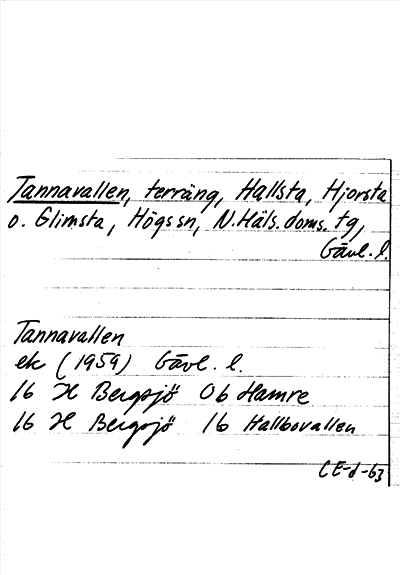 Tannavallen, terräng, Hallsta, Hjorsta
o. Glimsta, Högs sn, N.Häls. doms. tg,
Gävl. l.
Tannavallen
ek (1959) Gävl. l.
16 H Bergsjö 0b Hamre
16 H Bergsjö 1b Hallbovallen
CE-d-63